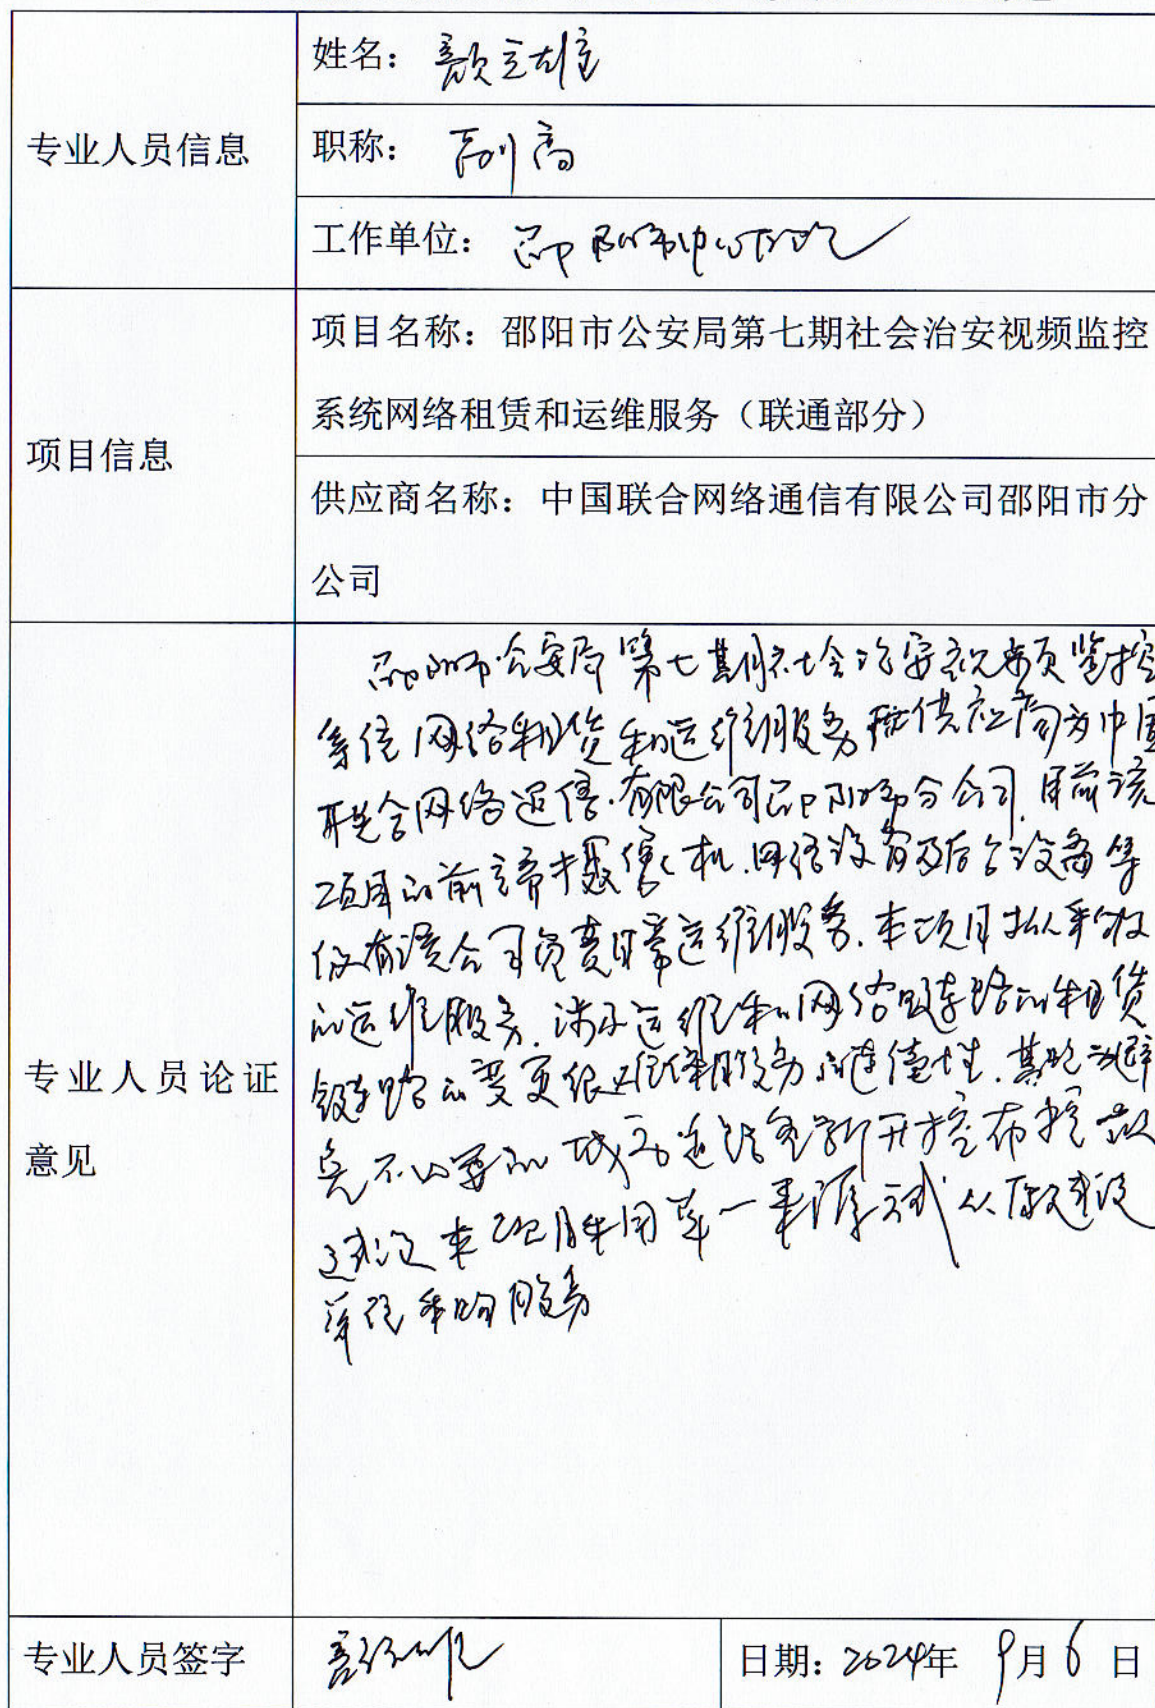 专业人员信息
姓名：颜立雄
职称：副高
工作单位：邵阳市中心医院
项目信息
项目名称：邵阳市公安局第七期社会治安视频监控
系统网络租赁和运维服务（联通部分）
供应商名称：中国联合网络通信有限公司邵阳市分
公司
专业人员论证
意见
邵阳市公安局第七期社会治安视频监控
系统网络租赁和运维服务 供应商为中国
联合网络通信有限公司邵阳市分公司.目前该
项目的前端摄像机.网络设备及后台设备等
仅有该公司负责日常运维服务.本项目拟采购
的运维服务.涉及运维和网络链路的租赁
链路的变更很难 服务的连续性.其 避
免不必要的 重新开挖布控 故
建议本项目采用单一来源方式从原建设
单位采购服务
专业人员签字
日期：2024年 9月6日